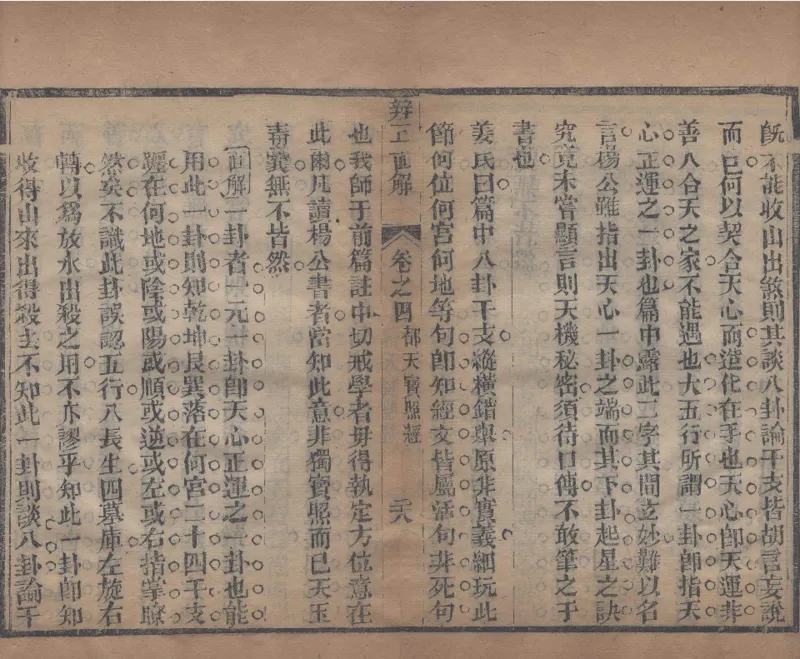 旣不能收山出煞則其談八卦論干支皆胡言妄說
而已何以契合天心而造化在手也天心卽天運非
善八合天之家不能遇也大五行所謂一卦卽指天
心正運之一卦也篇中露此三字其間玄妙難以名
言楊公雖指出天心一卦之端而其下卦起星之訣
究竟未嘗顯言則天機秘密須待口傳不敢筆之于
書也
姜氏曰篇中八卦干支縱橫錯舉原非實義細玩此
節何位何宮何地等句卽知經文皆屬活句非死句
辨正直解 卷之四 都天寶照經 二八
也我師于前篇註中切戒學者毋得執定方位意在
此爾凡讀楊公書者當知此意非獨寶照而已天玉
青囊無不皆然
直解一卦者一元一卦卽天心正運之一卦也能
用此一卦則知乾坤艮巽落在何宮二十四干支
躔在何地或陰或陽或順或逆或左或右指掌瞭
然矣不識此卦誤認五行八長生四墓庫左旋右
轉以爲放水出殺之用不亦謬乎知此一卦卽知
收得山來出得殺去不知此一卦則談八卦論干